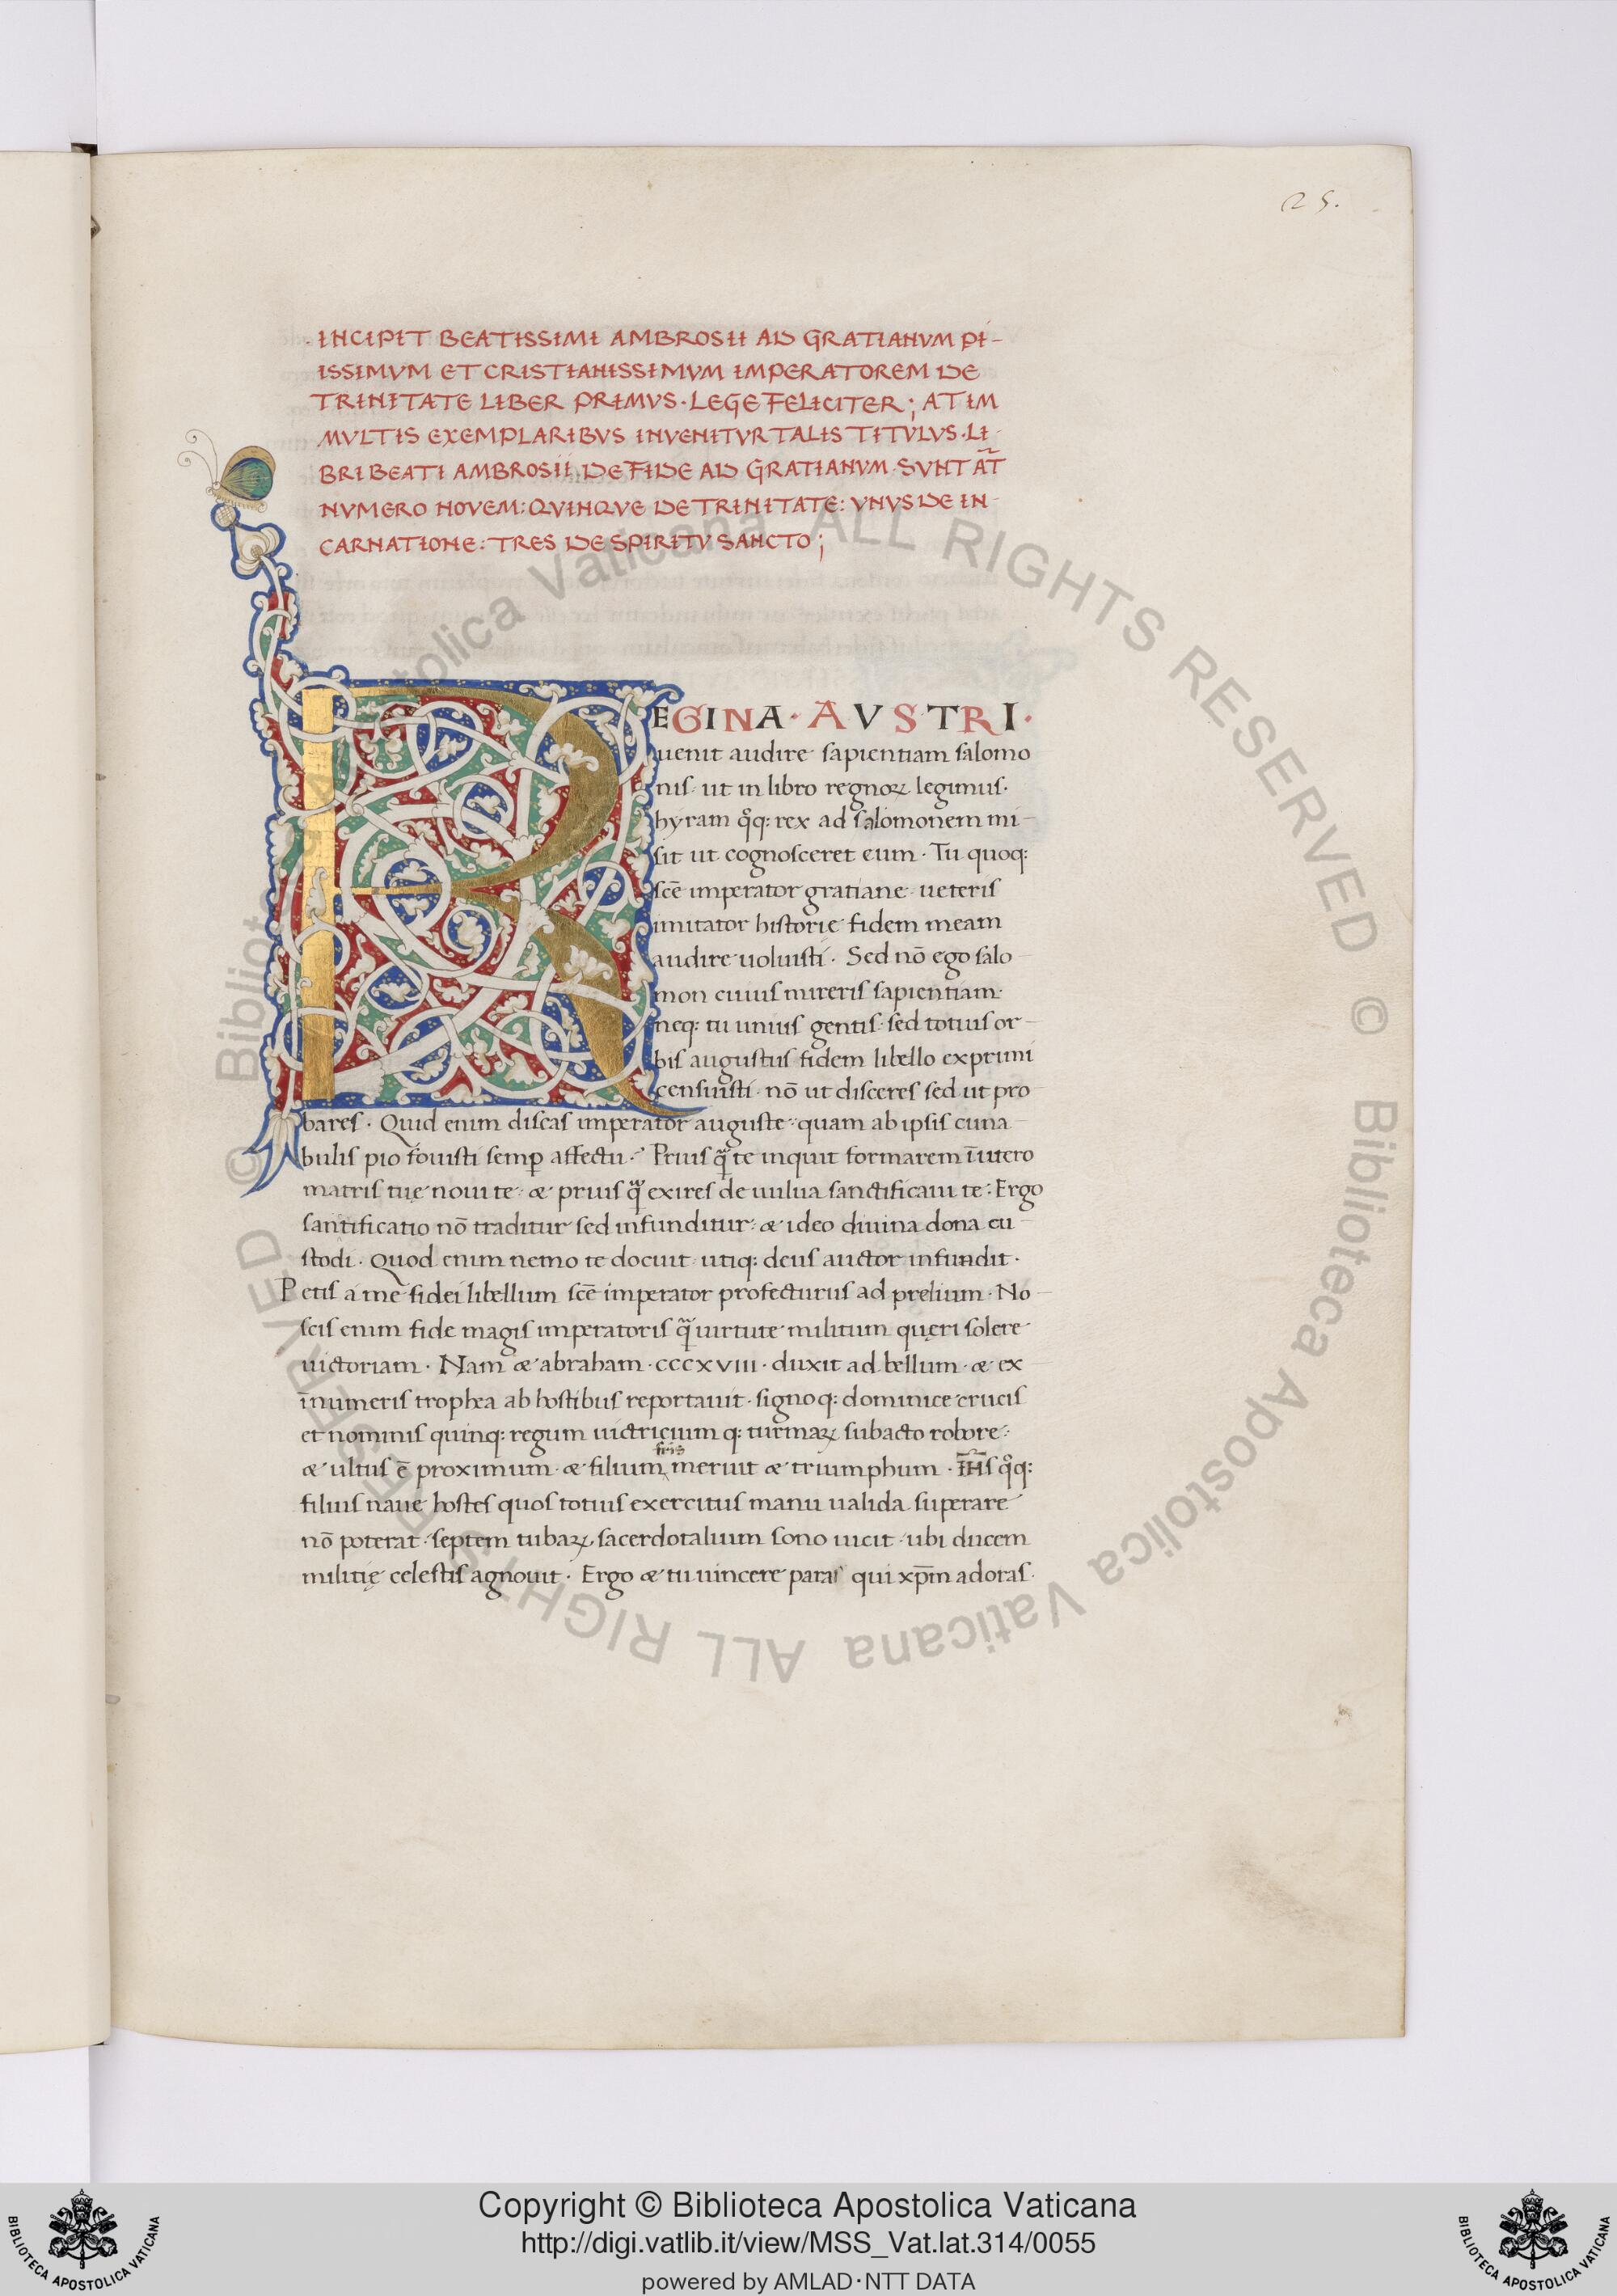 25.
INCIPIT BEATISSIMI AMBROSII AD GRATIANVM PI-
ISSIMVM ET CRISTIANISSIMVM IMPERATOREM DE
TRINITATE LIBER PRIMVS · LEGE FELICITER; AT IM
MVLTIS EXEMPLARIBVS INVENITVR TALIS TITVLVS · LI-
BRI BEATI AMBROSII · DE FIDE AD GRATIANVM · SVNT AT̄
NVMERO NOVEM: QVINQVE DE TRINITATE: VNVS DE IN-
CARNATIONE: TRES DE SPIRITV SANCTO;
REGINA · AVSTRI ·
uenit audire sapientiam salomo
nis · ut in libro regnoꝝ legimus ·
hyram qͦq: rex ad salomonem mi-
sit ut cognosceret eum · Tu quoq:
scē imperator gratiane · ueteris
imitator historie fidem meam
audire uoluisti · Sed nō ego salo-
mon cuius mireris sapientiam ·
neq: tu unius gentis · sed totius or-
bis augustus fidem libello exprimi
censuisti · nō ut disceres sed ut pro-
bares · Quid enim discas imperator auguste · quam ab ipsis cuna-
bulis pio fouisti semꝑ affectu · Prius qᷓ te inquit formarem ī utero
matris tuę noui te · æ prius qᷓ exires de uulua sanctificaui te : Ergo
santificatio nō traditur sed infunditur : æ ideo diuina dona cu-
stodi · Quod enim nemo te docuit utiq: deus auctor infundit ·
Petis a me fidei libellum scē imperator profecturus ad prelium · No-
scis enim fide magis imperatoris qᷓ uirtute militum quęri solere
uictoriam · Nam æ abraham · CCCXVIII · duxit ad bellum · æ ex
īnumeris trophea ab hostibus reportauit · signoq: dominice crucis
et nominis quinq: regum uictricium q: turmaꝝ subacto robore :
æ ultus ē proximum · æ filium meruit æ triumphum · IH̄S qͦq:
filius naue hostes quos totius exercitus manu ualida superare
nō poterat · septem tubaꝝ sacerdotalium sono uicit · ubi ducem
militię celestis agnouit · Ergo æ tu uincere paras qui xp̄m adoras ·
© Biblioteca Apostolica Vaticana ALL RIGHTS RESERVED © Biblioteca Apostolica Vaticana ALL RIGHTS RESERVED
Copyright © Biblioteca Apostolica Vaticana
http://digi.vatlib.it/view/MSS_Vat.lat.314/0055
powered by AMLAD·NTT DATA
BIBLIOTECA APOSTOLICA VATICANA
BIBLIOTECA APOSTOLICA VATICANA